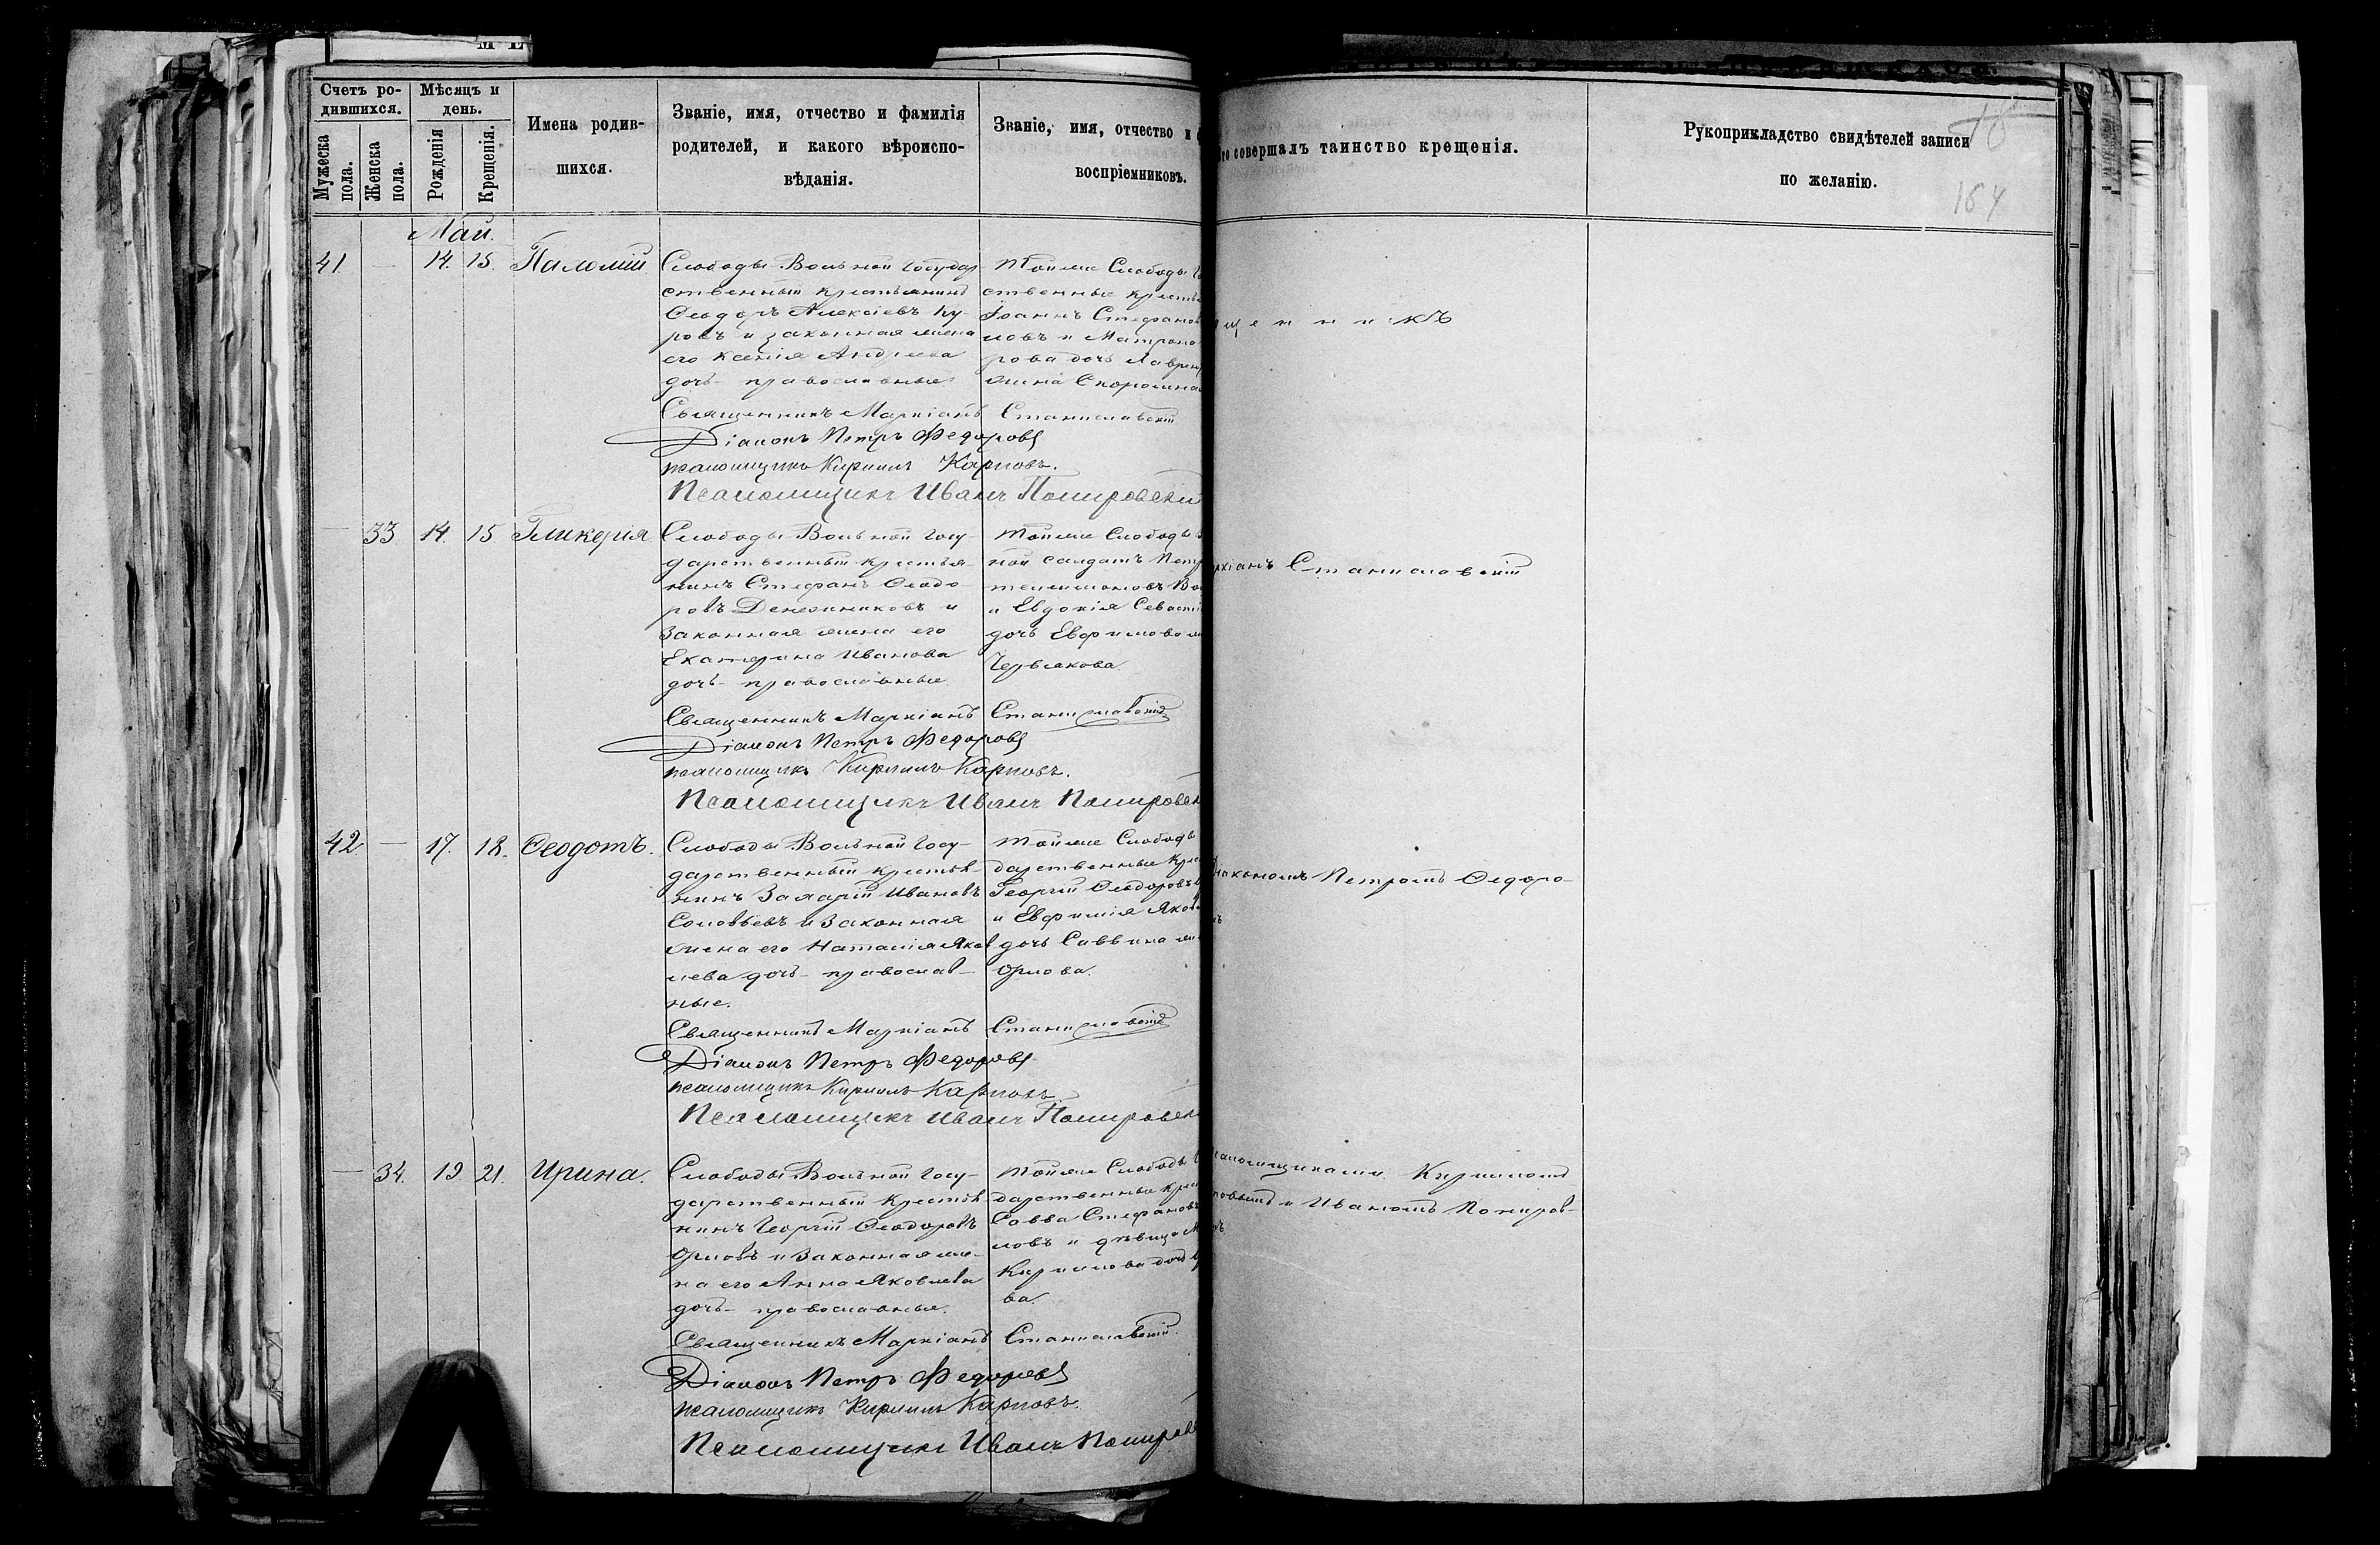 Счетъ ро-
дившихся.
Мѣсяцъ и
день.
Мужеска
пола.
Женска
пола.
Рожденія
Крещенія.
Имена родив-
шихся.
Званіе, имя, отчество и фамилія
родителей, и какого вѣроиспо-
вѣданія.
Званіе, имя, отчество и
воспріемниковъ.
совершалъ таинство крещенія.
Рукоприкладство свидѣтелей записи
по желанію.
164
Май.
41 — 14. 15.
Слободы Вольной Государ
ственный крестьянинъ
Ѳеодоръ Алексѣевъ Ку-
ровъ и законная жена
его Ксенія Андреева
дочь - православные
тойже Слободы
ственные
Іоаннъ
ловъ и Матрона
рова дочь
жена
Священникъ Маркіанъ Станиславскій
Діаконъ Петръ Федоровъ
псаломщикъ Кириллъ Карповъ.
Псаломщикъ Иванъ
— 33 14. 15 Гликерія
Слободы Вольной Госу-
дарственный крестья-
нинъ Стефанъ Ѳеодо-
ровъ Денежниковъ и
законная жена его
Екатерина Иванова
дочь - православные.
тойже Слободы
ной солдатъ
и Евдокія
дочь Евфимова
Червякова
Священникъ Маркіанъ Станиславскій
Діаконъ Петръ Федоровъ
псаломщикъ Кириллъ Карповъ.
Псаломщикъ Иванъ
42 — 17. 18. Ѳеодотъ.
Слободы Вольной Госу-
дарственный крестья
нинъ Захарій Ивановъ
Соловьевъ и законная
жена его Наталія Яков
лева дочь - православ-
ные.
тойже Слободы
дарственные
Георгій Ѳеодоровъ
и Евфимія
дочь Саввина
Орлова.
Священникъ Маркіанъ Станиславскій
Діаконъ Петръ Федоровъ
псаломщикъ Кириллъ Карповъ.
Псаломщикъ Иванъ
— 34. 19 21. Ирина.
Слободы Вольной Госу-
дарственный крестья
нинъ Георгій Ѳеодоровъ
Орловъ и законная же-
на его Анна Яковлева
дочь - православные.
тойже Слободы
дарственные
Савва Стефановъ
ловъ и дѣвица
Кириллова дочь
ва.
Священникъ Маркіанъ Станиславскій.
Діаконъ Петръ Федоровъ
псаломщикъ Кириллъ Карповъ.
Псаломщикъ Иванъ
щенникъ
Станиславскій
Петромъ Ѳедоро-
Кирилломъ
и Иваномъ